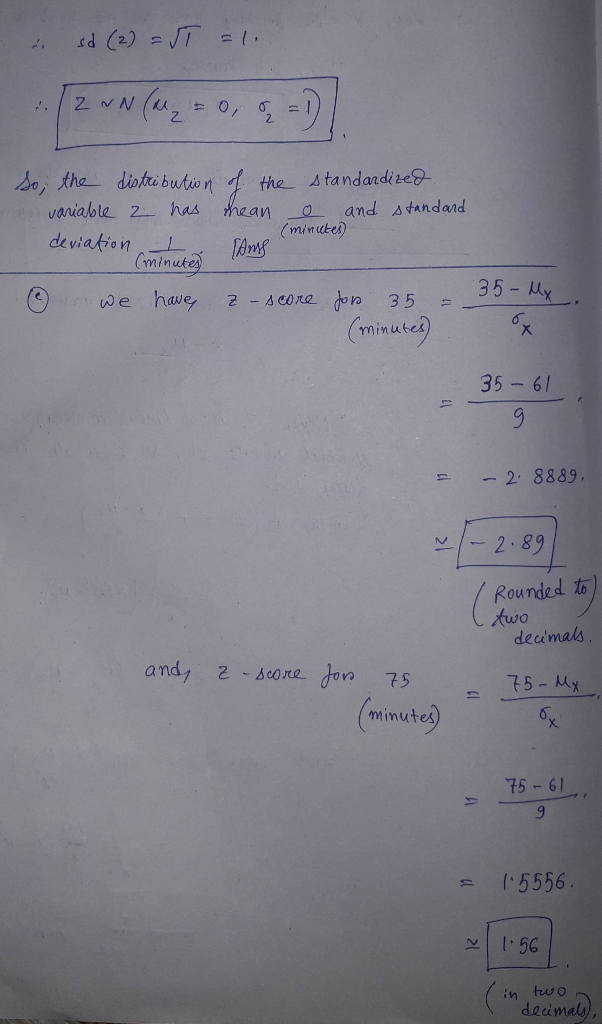 ∴ sd (z) = √1 = 1.
∴ Z ~ N (μ_z = 0, σ_z = 1).
So, the distribution of the standardized
variable z has mean 0 and standard
(minutes)
deviation 1. [Ans]
(minutes)
(e) we have, z - score for 35 = 35 - μ_x / σ_x.
(minutes)
= 35 - 61 / 9.
= - 2.8889.
≃ - 2.89
(Rounded to
two
decimals.)
and, z - score for 75 = 75 - μ_x / σ_x
(minutes)
= 75 - 61 / 9.
= 1.5556.
≃ 1.56.
(in two
decimals),